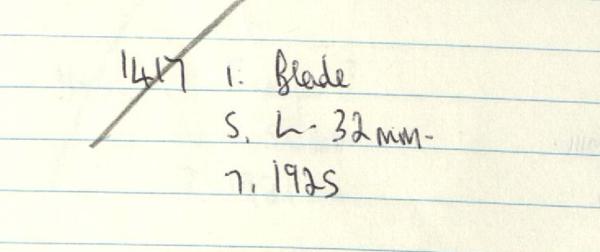 1417 1. Blade
5. L- 32mm-
7. 1925